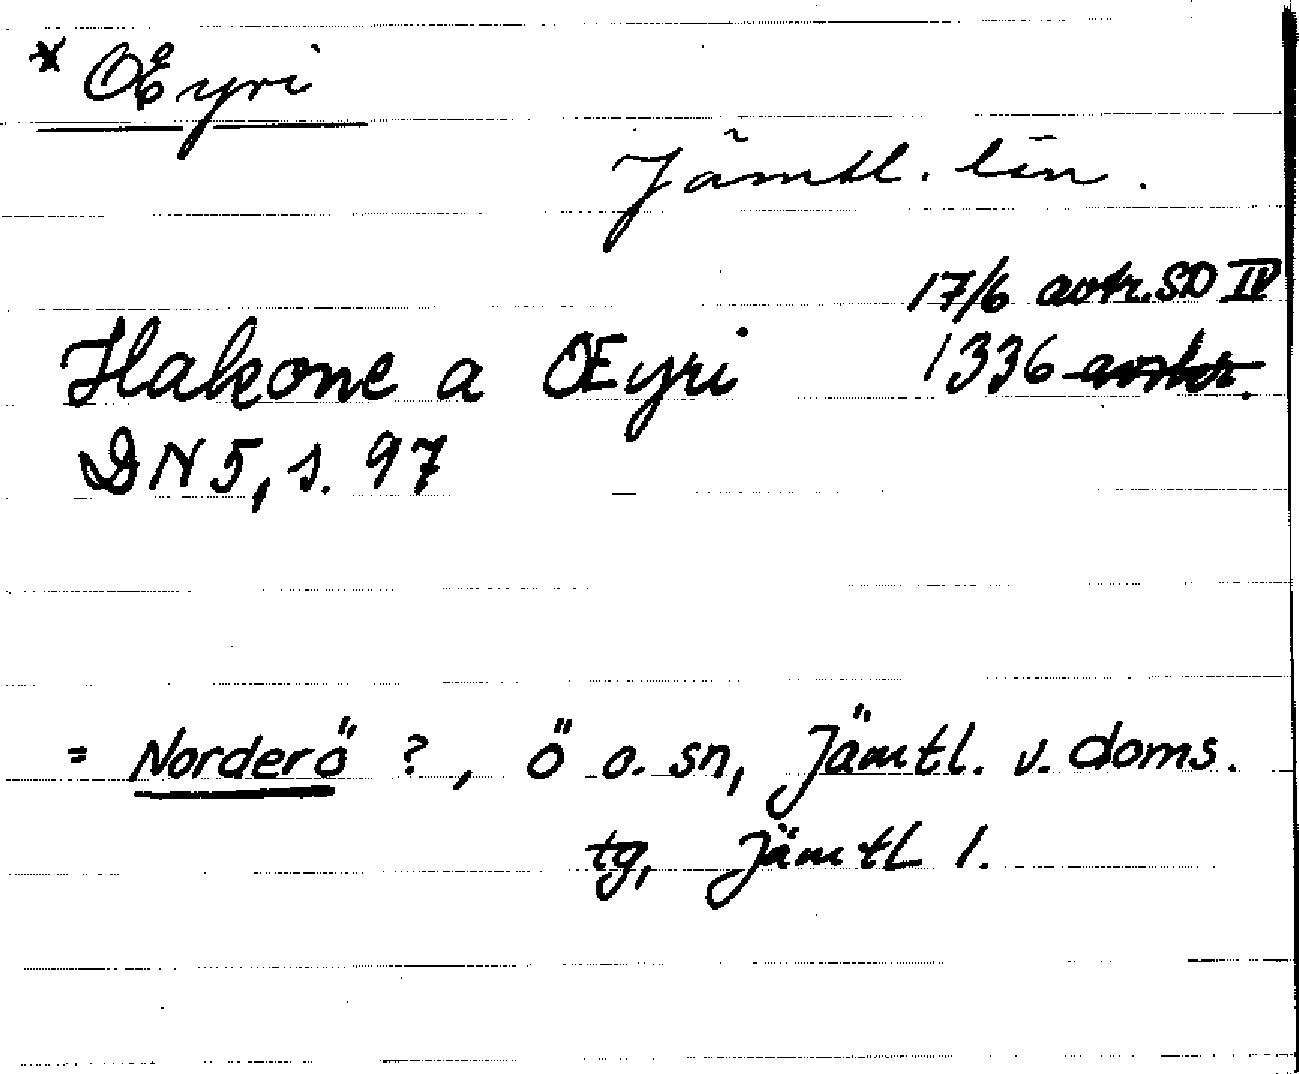 * Œyri
Jämtl. län.
17/6 avtr. SD IV
Hakone a Œyri 1336
DN 5, s. 97
= Norderö ?, ö o. sn, Jämtl. v. doms.
tg, Jämtl l.